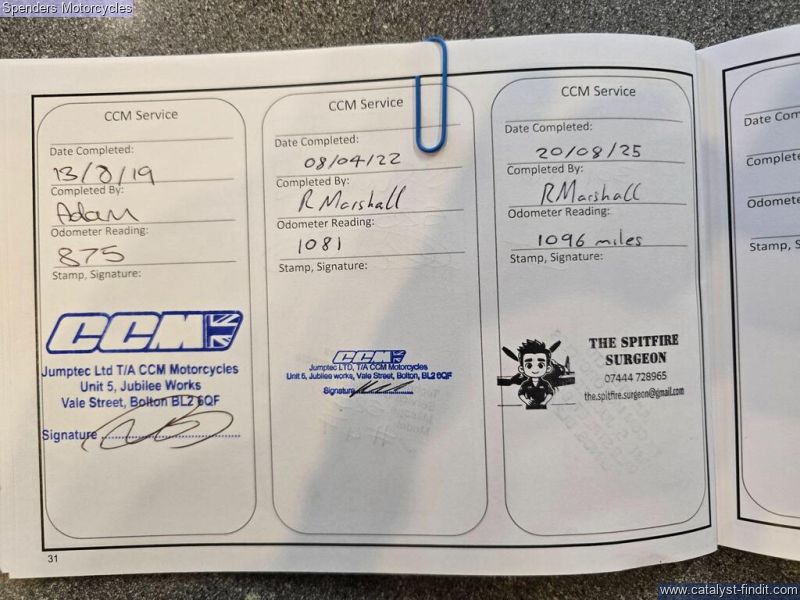 Spenders Motorcycles
CCM Service
Date Completed:
13/8/19
Completed By:
Adam
Odometer Reading:
875
Stamp, Signature:
CCM
Jumptec Ltd T/A CCM Motorcycles
Unit 5, Jubilee Works
Vale Street, Bolton BL2 6QF
Signature
31
CCM Service
Date Completed:
08/04/22
Completed By:
R Marshall
Odometer Reading:
1081
Stamp, Signature:
CCM
Jumptec LTD, T/A CCM Motorcycles
Unit 5, Jubilee works, Vale Street, Bolton, BL2 6QF
Signature
CCM Service
Date Completed:
20/08/25
Completed By:
RMarshall
Odometer Reading:
1096 miles
Stamp, Signature:
THE SPITFIRE
SURGEON
07444 728965
the.spitfire.surgeon@gmail.com
Date Com
Complete
Odome
Stamp, S
www.catalyst-findit.com